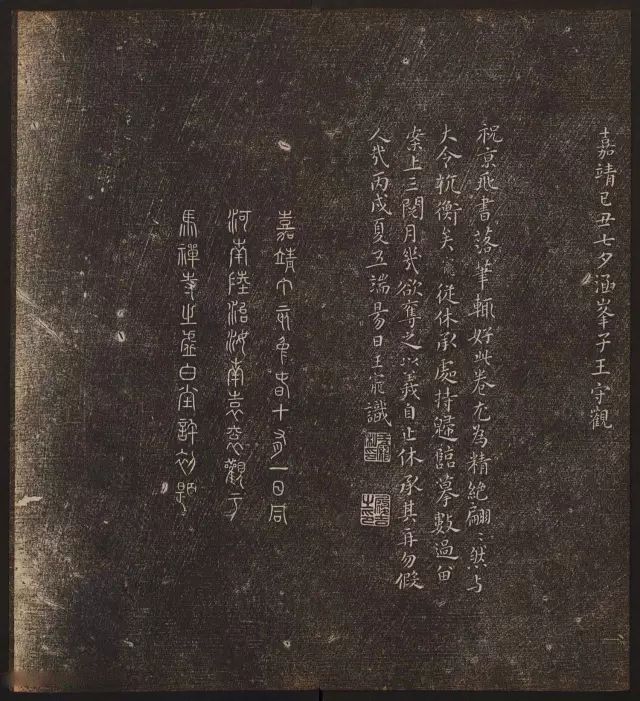 嘉靖己丑七夕涵峯子王守觀
祝京兆書落筆輒好此卷尤為精絕翩〻然与
大令抗衡矣寵從休承處持歸臨摹數過留
案上三閱月幾欲奪之以義自止休承其再勿假
人哉丙戌夏五端昜日王寵識
嘉靖亥春十有一日同
河南陸治汝南袁觀于
馬禪寺之虛白堂許初題